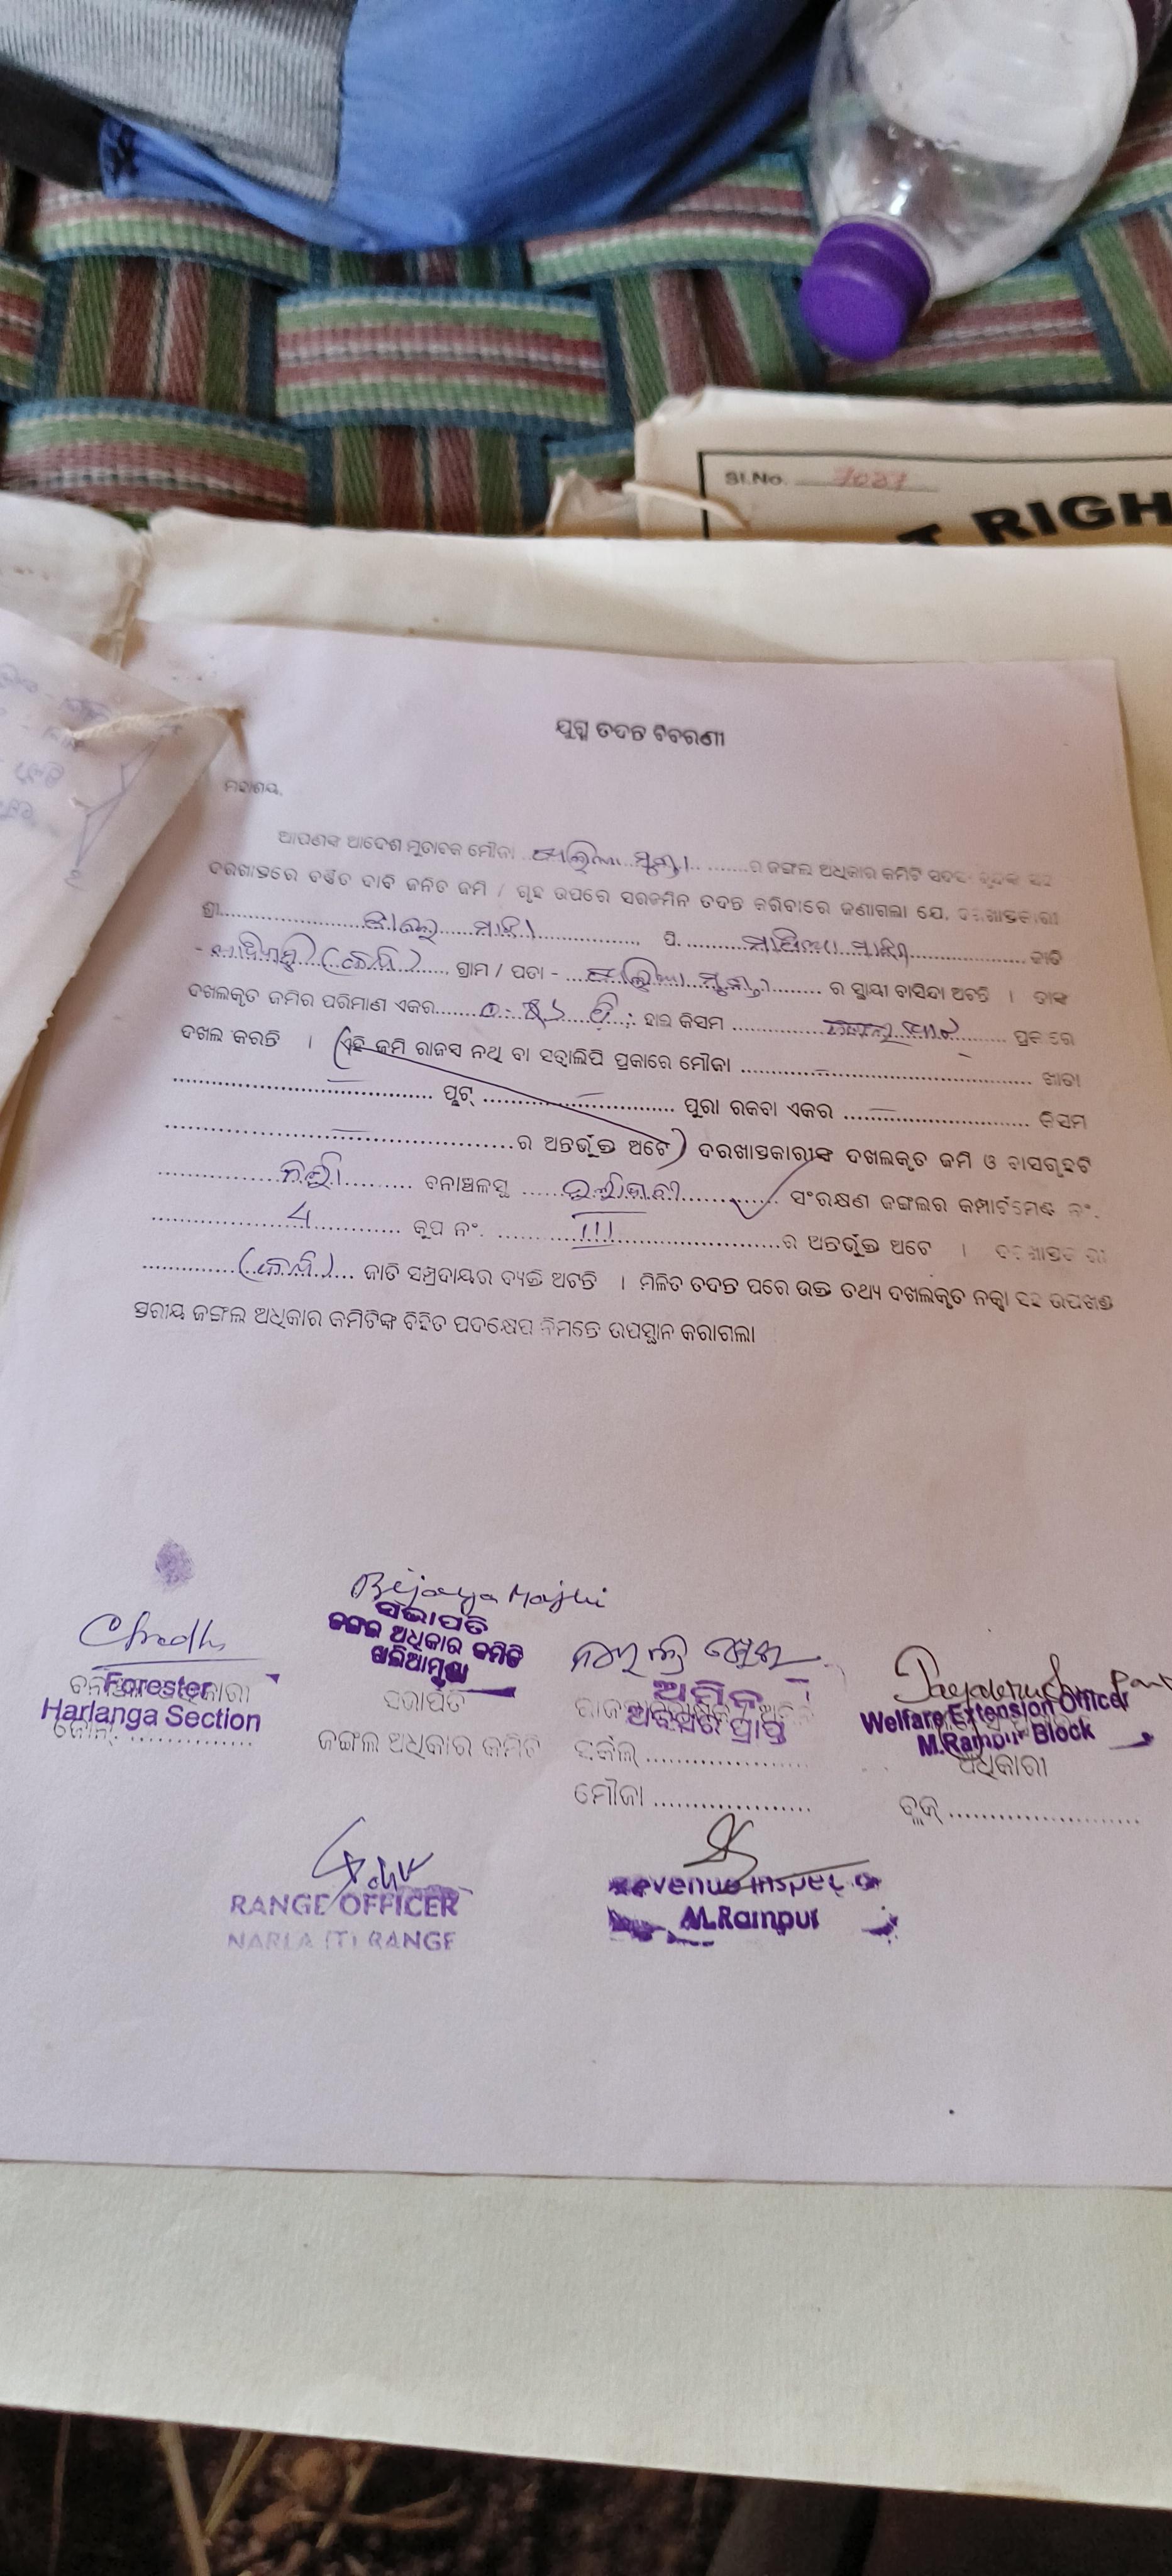 Sl.No. 7027
T RIGH
ଯୁଗ୍ମ ତଦନ୍ତ ବିବରଣୀ
ମହାଶୟ,
ଆପଣଙ୍କ ଆଦେଶ ମୁତାବକ ମୌଜା ଖଲିଆମୁଣ୍ଡା ର ଜଙ୍ଗଲ ଅଧିକାର କମିଟି
ଦରଖାସ୍ତରେ ବର୍ଣ୍ଣିତ ଦାବି ଜନିତ ଜମି / ଗୃହ ଉପରେ ସରଜମିନ ତଦନ୍ତ କରିବାରେ ଜଣାଗଲା ଯେ, ଦରଖାସ୍ତକାରୀ
ଶ୍ରୀ ମାଝୀ ପି. ମାଝୀ ଜାତି
- ଆଦିବାସୀ (କନ୍ଧ) ଗ୍ରାମ / ପଡା - ଖଲିଆମୁଣ୍ଡା ର ସ୍ଥାୟୀ ବାସିନ୍ଦା ଅଟନ୍ତି । ତାଙ୍କ
ଦଖଲକୃତ ଜମିର ପରିମାଣ ଏକର ହାଲ କିସମ ପ୍ରକାରେ
ଦଖଲ କରନ୍ତି । (ଏହି ଜମି ରାଜସ୍ୱ ନଥି ବା ସତ୍ୱାଲିପି ପ୍ରକାରେ ମୌଜା – ଖାତା
– ପ୍ଲଟ୍ – ପୁରା ରକବା ଏକର – କିସମ
– ର ଅନ୍ତର୍ଭୁକ୍ତ ଅଟେ) ଦରଖାସ୍ତକାରୀଙ୍କ ଦଖଲକୃତ ଜମି ଓ ବାସଗୃହଟି
ନର୍ଲା ବନାଞ୍ଚଳସ୍ଥ ସଂରକ୍ଷଣ ଜଙ୍ଗଲର କମ୍ପାର୍ଟମେଣ୍ଟ ନଂ.
4 କୁପ ନଂ. III ର ଅନ୍ତର୍ଭୁକ୍ତ ଅଟେ । ଦରଖାସ୍ତକାରୀ
(କନ୍ଧ) ଜାତି ସମ୍ପ୍ରଦାୟର ବ୍ୟକ୍ତି ଅଟନ୍ତି । ମିଳିତ ତଦନ୍ତ ପରେ ଉକ୍ତ ତଥ୍ୟ ଦଖଲକୃତ ନକ୍ସା ସହ ଉପଖଣ୍ଡ
ସ୍ତରୀୟ ଜଙ୍ଗଲ ଅଧିକାର କମିଟିଙ୍କ ବିହିତ ପଦକ୍ଷେପ ନିମନ୍ତେ ଉପସ୍ଥାନ କରାଗଲା
Bijaya Majhi
ସଭାପତି
ଜଙ୍ଗଲ ଅଧିକାର କମିଟି
ଖଲିଆମୁଣ୍ଡା
ସଭାପତି
ଜଙ୍ଗଲ ଅଧିକାର କମିଟି
Forester
Harlanga Section
ଅମିନ
ଅବସର ପ୍ରାପ୍ତ
ସର୍କଲ୍
ମୌଜା
Welfare Extension Officer
M.Rampur Block
ଅଧିକାରୀ
ବ୍ଲକ୍
RANGE OFFICER
NARLA (T) RANGE
Revenue Inspector
M.Rampur